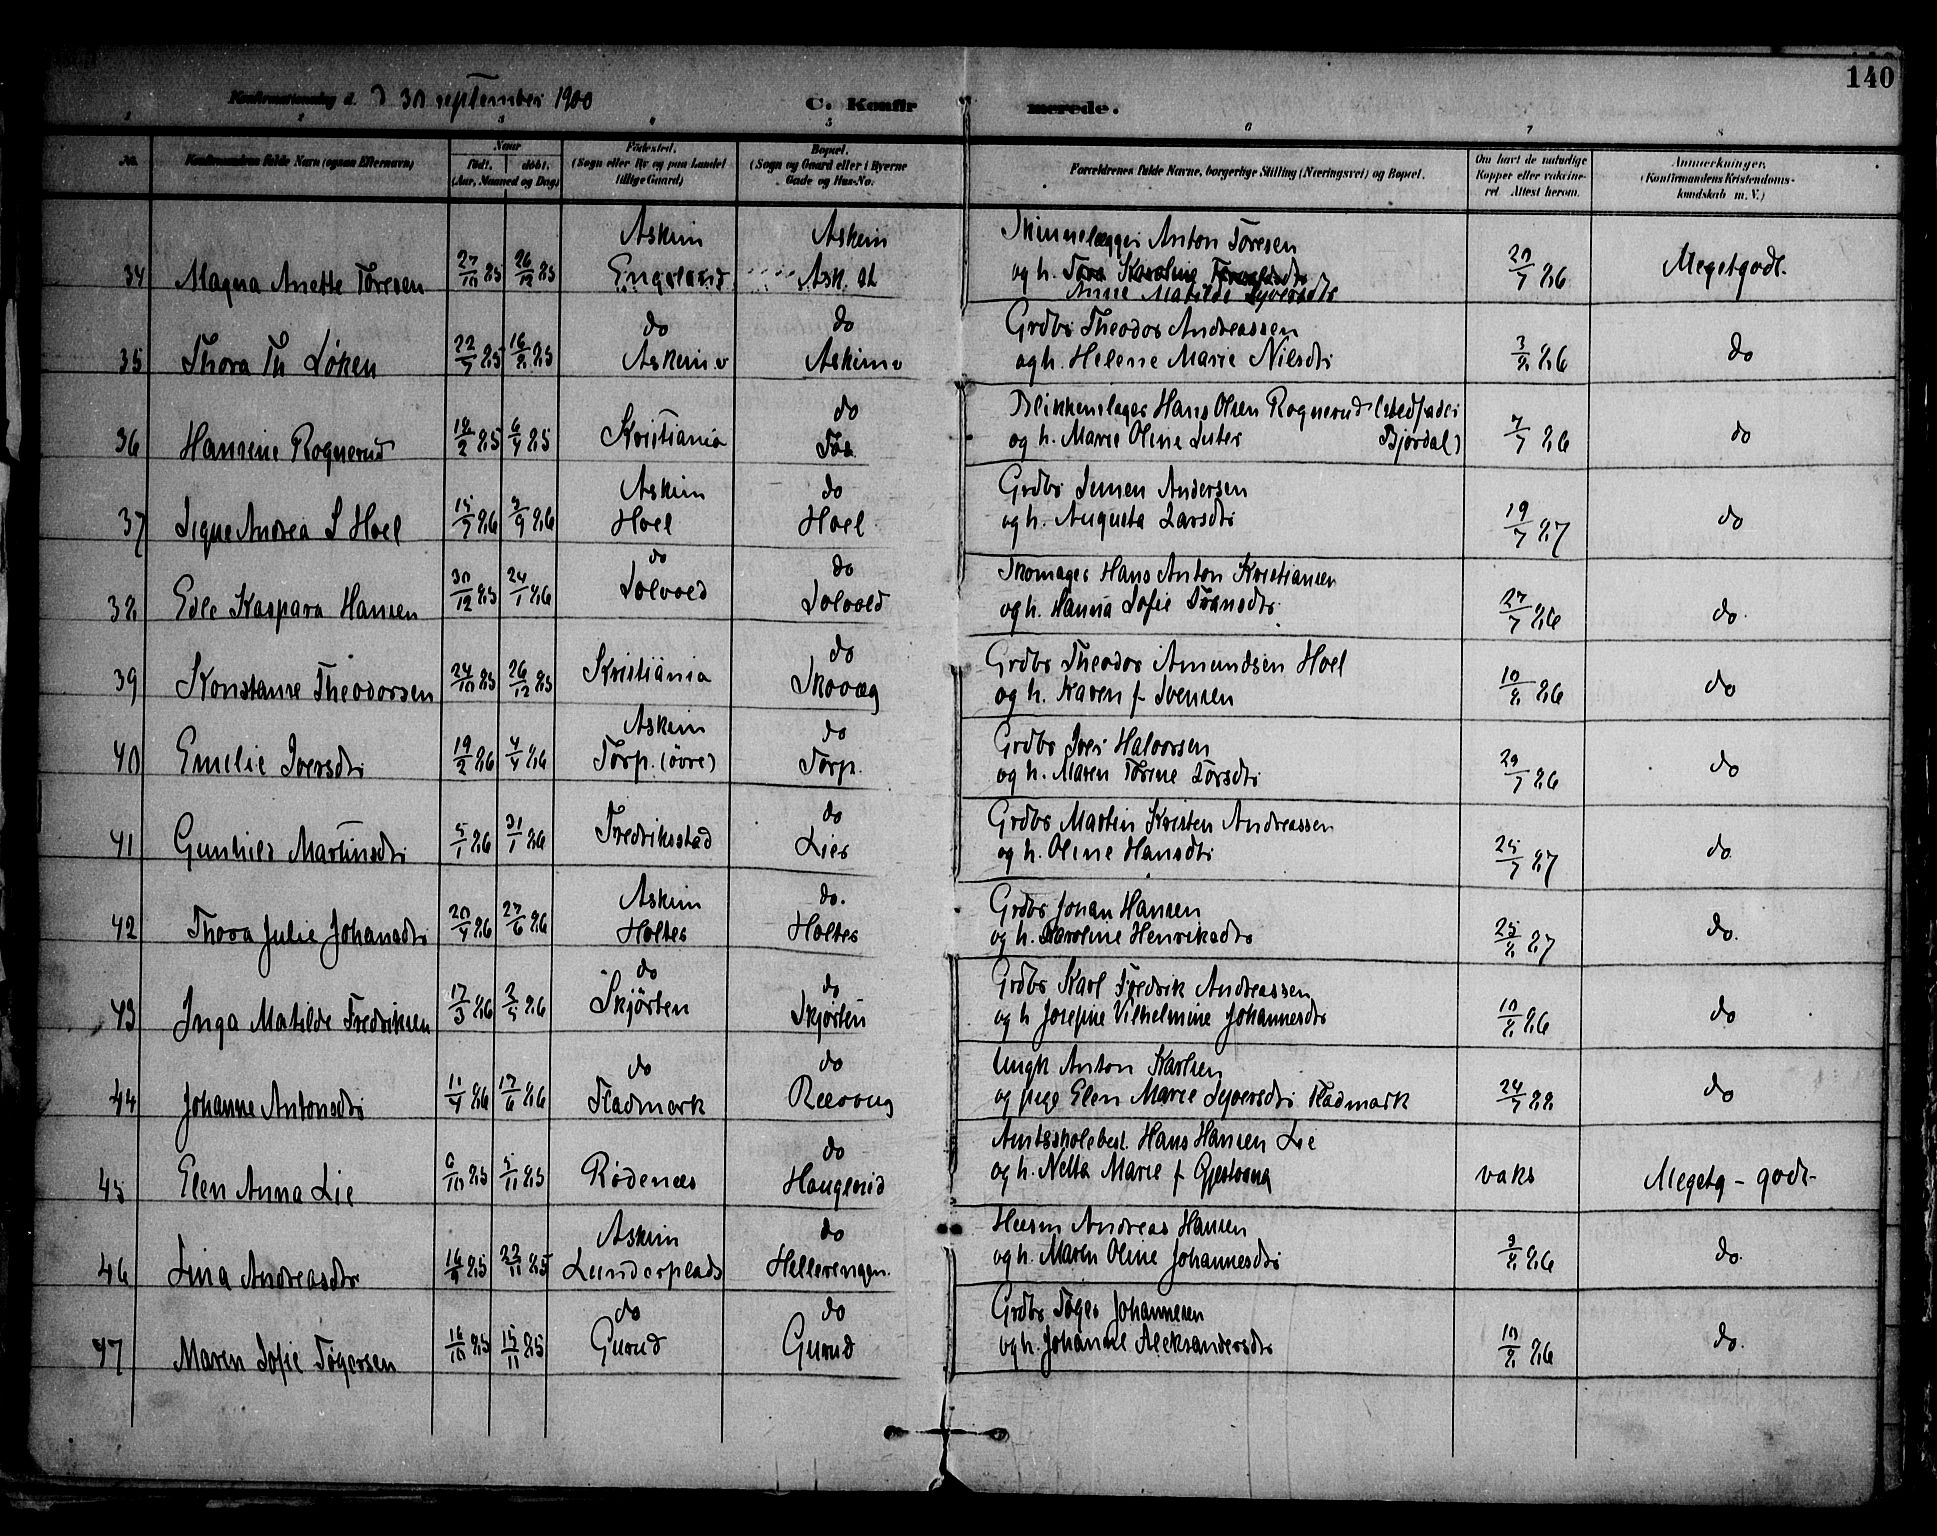 140
Konfirmationsdag d. 30 september 1900
C. Konfirmerede.
1 2 3 4 5 6 7 8
No. Konfirmandens fulde Navn (ogsaa Efternavn) Naar født, døbt, (Aar, Maaned og Dag) Fødested. (Sogn eller By og paa Landet tillige Gaard) Bopæl. (Sogn og Gaard eller i Byerne Gade og Hus-No. Forældrenes fulde Navne, borgerlige Stilling (Næringsvei) og Bopæl. Om havt de naturlige Kopper eller vaksineret Attest herom. Anmerkninger. (Konfirmandens Kristendomskundskab m. V.)
Askim Askim Skinnelægger Anton Toresen
34 Magna Anette Toresen 27/10 85 26/12 85 Engeland Ask. st og h. Anne Matilde Syversdtr 20/7 86 Meget godt.
do do Grdbr Theodor Andreassen
35 Thora Th Løken 22/7 85 16/8 85 Askim v Askim v og h. Helene Marie Nilsdtr 3/8 86 do
do Blikkenslager Hans Olsen Rognerud (stedfader
36 Hansine Rognerud 18/2 85 6/4 85 Kristiania Tos og h. Marie Oline Bjørdal) 7/7 86 do
Askim do Grdbr Simen Andersen
37 Signe Andrea S Hoel 15/7 86 2/9 86 Hoel Hoel og h. Augusta Larsdtr 19/7 87 do
do do Skomager Hans Anton Kristiansen
38 Edle Kaspara Hansen 30/12 85 24/1 86 Solvold Solvold og h. Hanna Sofie Fransdtr 27/7 86 do.
do Grdbr Theodor Amundsen Hoel
39 Konstanse Theodorsen 24/10 85 26/12 85 Kristiania Skovæg og h. Karen f Svensen 10/8 86 do
Askim do Grdbr Iver Halvorsen
40 Emilie Iversdtr 19/2 86 4/4 86 Torp. (øvre) Torp. og h. Maren Torine Larsdtr 29/7 86 do
do Grdbr Martin Kristen Andreassen
41 Gunhild Martinsdtr 5/1 86 31/1 86 Fredriksstad Lier og h. Oline Hansdtr 25/7 87 do
Askim do. Grdbr Johan Hansen
42 Thora Julie Johansdtr 20/4 86 27/6 86 Holtes Holtes og h. Karoline Henriksdtr 25/8 87 do.
do do Grdbr Karl Fredrik Andreassen
43 Inga Matilde Fredriksen 17/3 86 2/5 86 Skjørten Skjørten og h Josefine Vilhelmine Johannesdtr 10/8 86 do
do do Ungk Anton Karlsen
44 Johanne Antonsdtr 11/4 86 17/6 86 Fladmark og pige Elen Marie Syversdtr Fladmark 24/7 88 do
do Amtsskolebest. Hans Hansen Lie
45 Elen Anna Lie 6/10 85 5/11 85 Rødenæs Haugerud og h. Netta Marie f Gjestvang vaks Megetg - godt-
Askim do Husm Andreas Hansen
46 Lina Andreasdtr 16/9 85 22/11 85 Lundersplads Hellerengen. og h. Maren Oline Johannesdtr 9/8 86 do.
do do Grdbr Tøger Johannesen
47 Maren Sofie Tøgersen 16/10 85 15/11 85 Gurud Gurud og h. Johanne Aleksandersdtr 10/8 86 do.